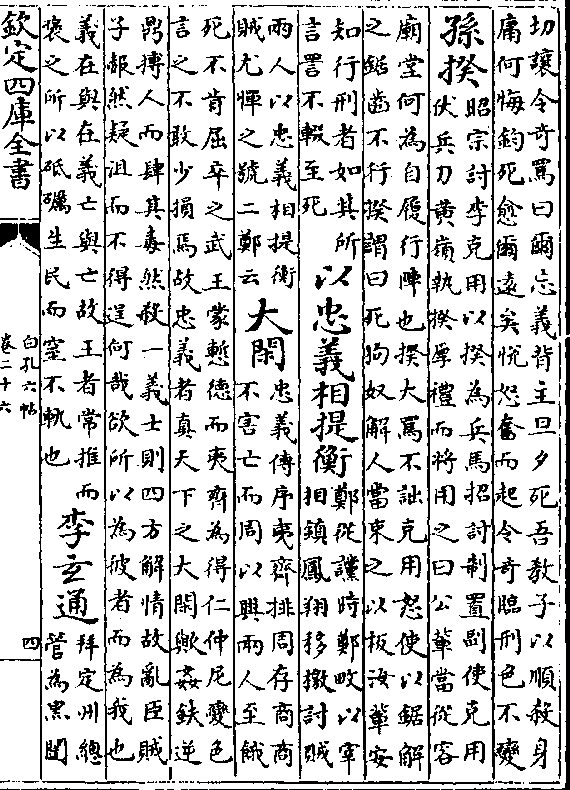 切讓令奇罵曰爾忘義背主旦夕死吾敎子以順殺身
庸何悔鈞死愈爾遠矣悅怒奮而起令奇臨刑色不變
孫揆
昭宗討李克用以揆為兵馬招討制置副使克用
伏兵刀黄嶺執揆厚禮而將用之曰公軰當從容
廟堂何為自履行陣也揆大罵不詘克用怒使以鋸解
之鋸齒不行揆謂曰死狗奴解人當束之以板汝軰安
知行刑者如其所
言詈不輟至死
以忠義相提衡
鄭從讜時鄭畋以宰
相鎮鳳翔移檄討賊
兩人以忠義相提衡
賊尤憚之號二鄭云
大閑
忠義傳序夷齊排周存商商
不害亡而周以興兩人至餓
死不肯屈卒之武王蒙慙德而夷齊為得仁仲尼變色
言之不敢少損焉故忠義者真天下之大閑歟姦鈇逆
鼎搏人而肆其毒然殺一義士則四方解情故亂臣賊
子赧然疑沮而不得逞何哉欲所以為彼者而為我也
義在與在義亡與亡故王者常推而
褒之所以砥礪生民而窒不軌也
李玄通
拜定州總
管為黒闥
欽定四庫全書
白孔六帖
卷二十六
四